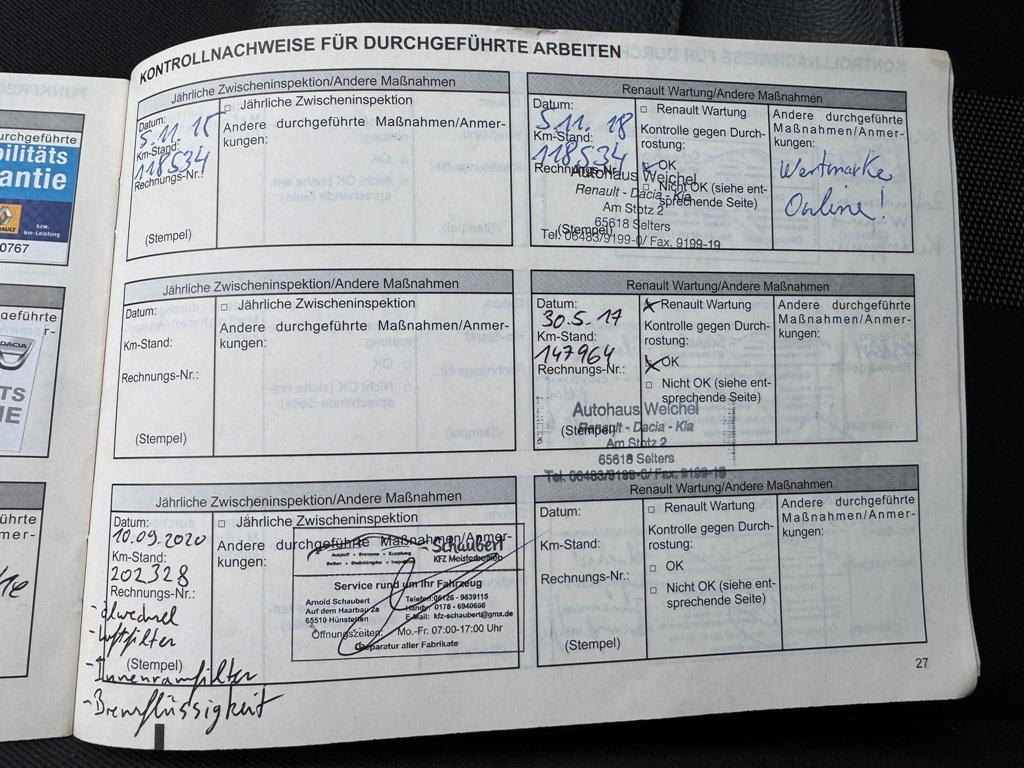 KONTROLLNACHWEISE FÜR DURCHGEFÜHRTE ARBEITEN
Jährliche Zwischeninspektion/Andere Maßnahmen
Datum:
5.11.15
Km-Stand:
118534
Rechnungs-Nr.:
(Stempel)
□ Jährliche Zwischeninspektion
Andere durchgeführte Maßnahmen/Anmer-
kungen:
Renault Wartung/Andere Maßnahmen
Datum:
5.11.18
Km-Stand:
118534
Rechnungs-Nr.:
(Stempel)
□ Renault Wartung
Kontrolle gegen Durch-
rostung:
OK
□ Nicht OK (siehe ent-
sprechende Seite)
Andere durchgeführte
Maßnahmen/Anmer-
kungen:
Wertmarke
Online!
Autohaus Weichel
Renault - Dacia - Kia
Am Stotz 2
65618 Selters
Tel. 06483/9199-0/ Fax. 9199-19
Jährliche Zwischeninspektion/Andere Maßnahmen
Datum:
Km-Stand:
Rechnungs-Nr.:
(Stempel)
□ Jährliche Zwischeninspektion
Andere durchgeführte Maßnahmen/Anmer-
kungen:
Renault Wartung/Andere Maßnahmen
Datum:
30.5.17
Km-Stand:
147964
Rechnungs-Nr.:
(Stempel)
Renault Wartung
Kontrolle gegen Durch-
rostung:
OK
□ Nicht OK (siehe ent-
sprechende Seite)
Andere durchgeführte
Maßnahmen/Anmer-
kungen:
Autohaus Weichel
Renault - Dacia - Kia
Am Stotz 2
65618 Selters
Tel. 06483/9199-0/ Fax. 9199-19
Jährliche Zwischeninspektion/Andere Maßnahmen
Datum:
10.09.2020
Km-Stand:
202328
Rechnungs-Nr.:
- Ölwechsel
- Luftfilter
(Stempel)
- Innenramfilter
- Bremsflüssigkeit
□ Jährliche Zwischeninspektion
Andere durchgeführte Maßnahmen/Anmer-
kungen:
Schaubert
KFZ Meisterbetrieb
Service rund um Ihr Fahrzeug
Arnold Schaubert
Auf dem Haarbau 2a
65510 Hünstetten
Telefon:06126 - 9839115
Handy: 0178 - 6940666
E-Mail: kfz-schaubert@gmx.de
Öffnungszeiten: Mo.-Fr. 07:00-17:00 Uhr
Reparatur aller Fabrikate
Renault Wartung/Andere Maßnahmen
Datum:
Km-Stand:
Rechnungs-Nr.:
(Stempel)
□ Renault Wartung
Kontrolle gegen Durch-
rostung:
□ OK
□ Nicht OK (siehe ent-
sprechende Seite)
Andere durchgeführte
Maßnahmen/Anmer-
kungen:
27